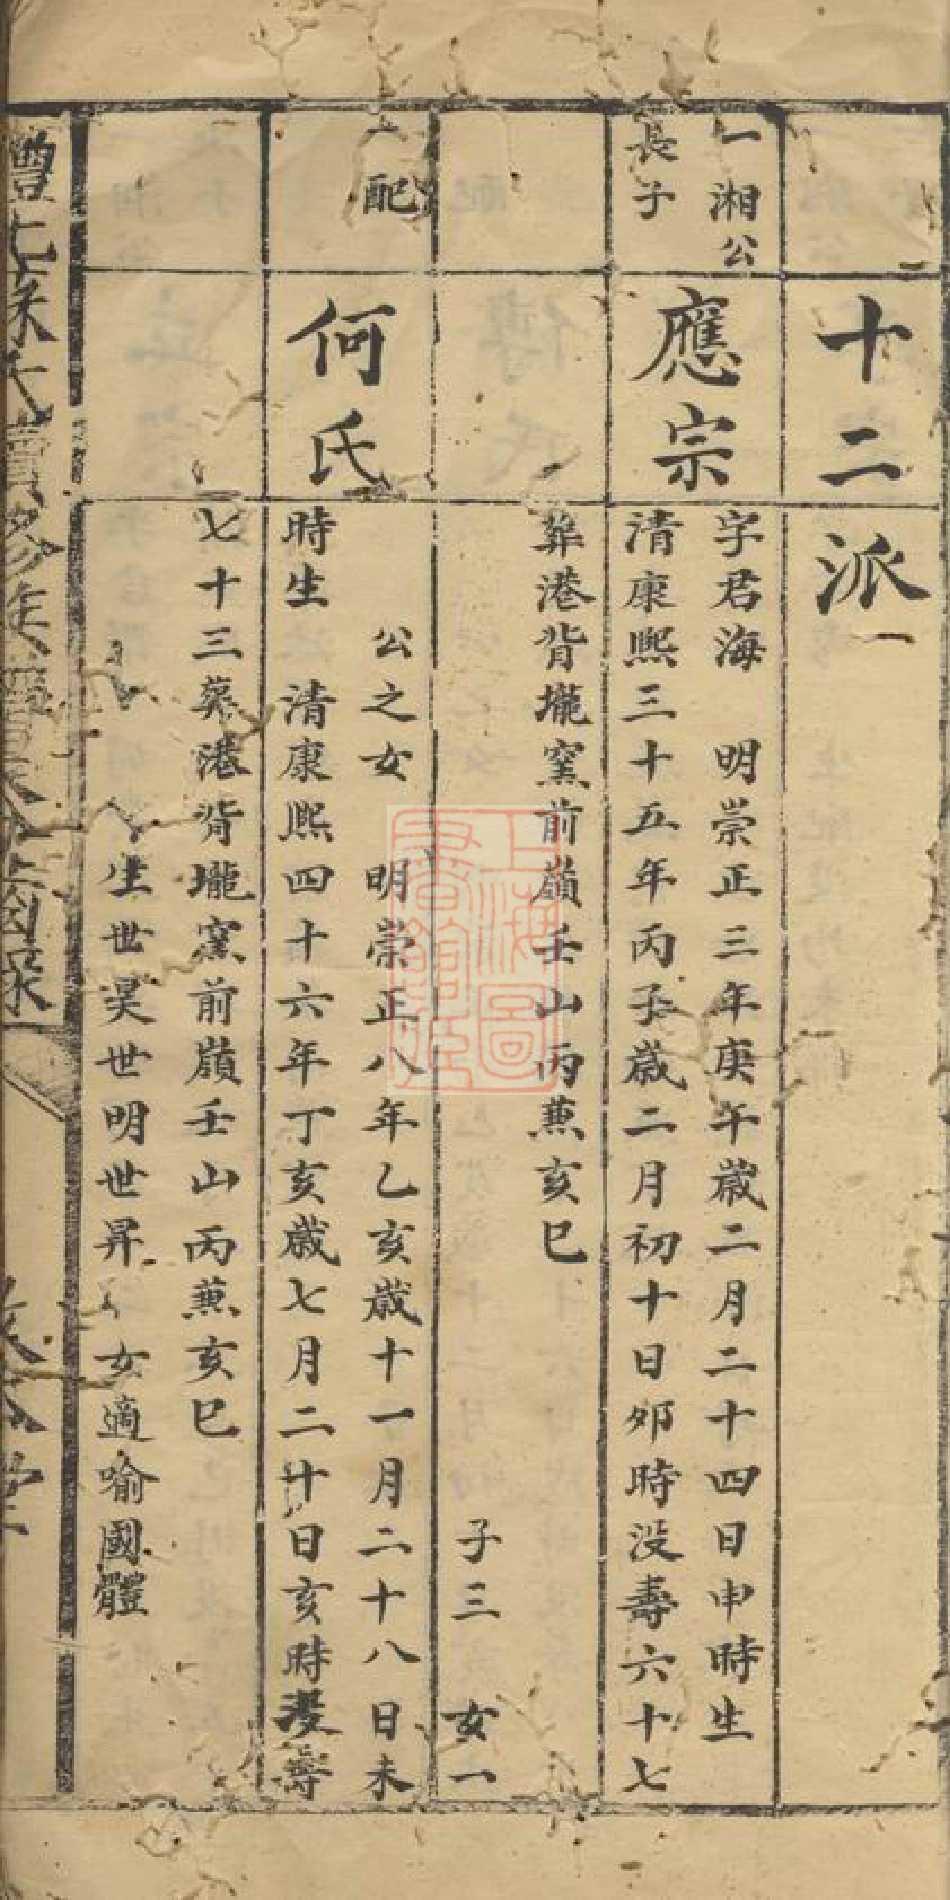 十二派
一湘公
長子
應宗
字君海 明崇正三年庚午歲二月二十四日申時生
清康熙三十五年丙子歲二月初十日夘時没壽六十七
葬港背壠窯前嶺壬山丙兼亥巳
子三 女一
配
何氏
公之女 明崇正八年乙亥歲十一月二十八日未
時生 清康熙四十六年丁亥歲七月二十日亥時没壽
七十三葬港背壠窯前嶺壬山丙兼亥巳
生世昊世明世昇 女適喻國體
上海圖
書館藏